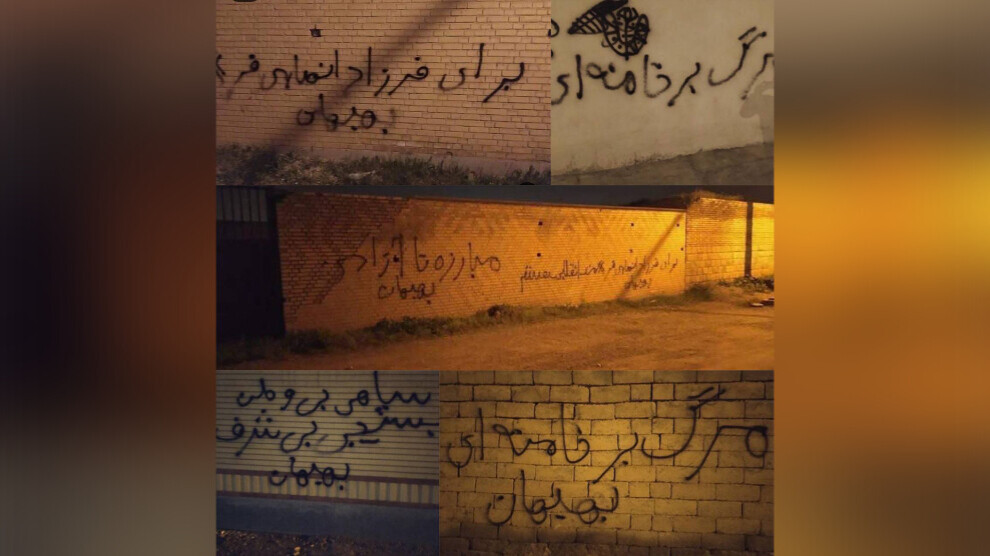 برای فرزاد انصاری فر
بهبهان
مرگ بر خامنه ای
برای فرزاد انصاری فر
بهبهان
مبارزه تا آزادی
بهبهان
سپاهی بی وطن
بسیجی بی شرف
بهبهان
مرگ بر خامنه ای
بهبهان